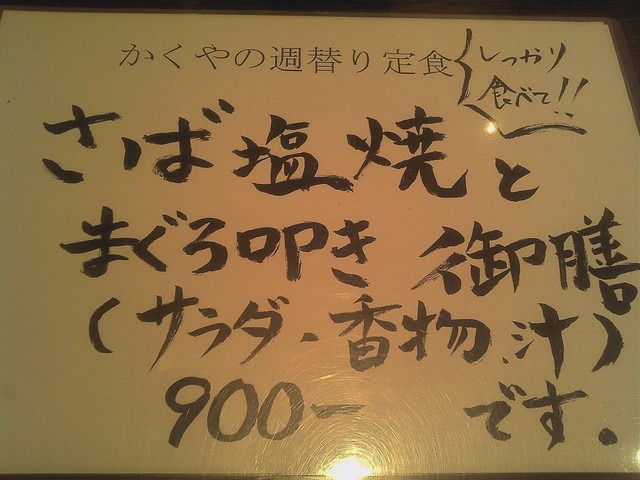 かくやの週替り定食
しっかり
食べて!!
さば塩焼と
まぐろ叩き 御膳
(サラダ・香物 汁)
900ー です.